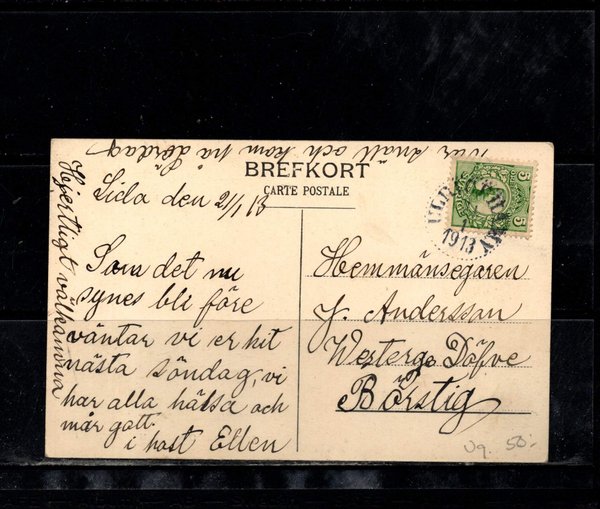 var snäll och kom på Lördag
BREFKORT
CARTE POSTALE
Lida den 2/1 13
Som det nu
synes bli före
väntar vi er hit
nästa söndag, vi
har alla hälsa och
mår gott.
i hast Ellen
Hjertligt välkomna
5 5
1913
Hemmansegaren
J. Andersson
Westergo Döfve
Börstig
50:-